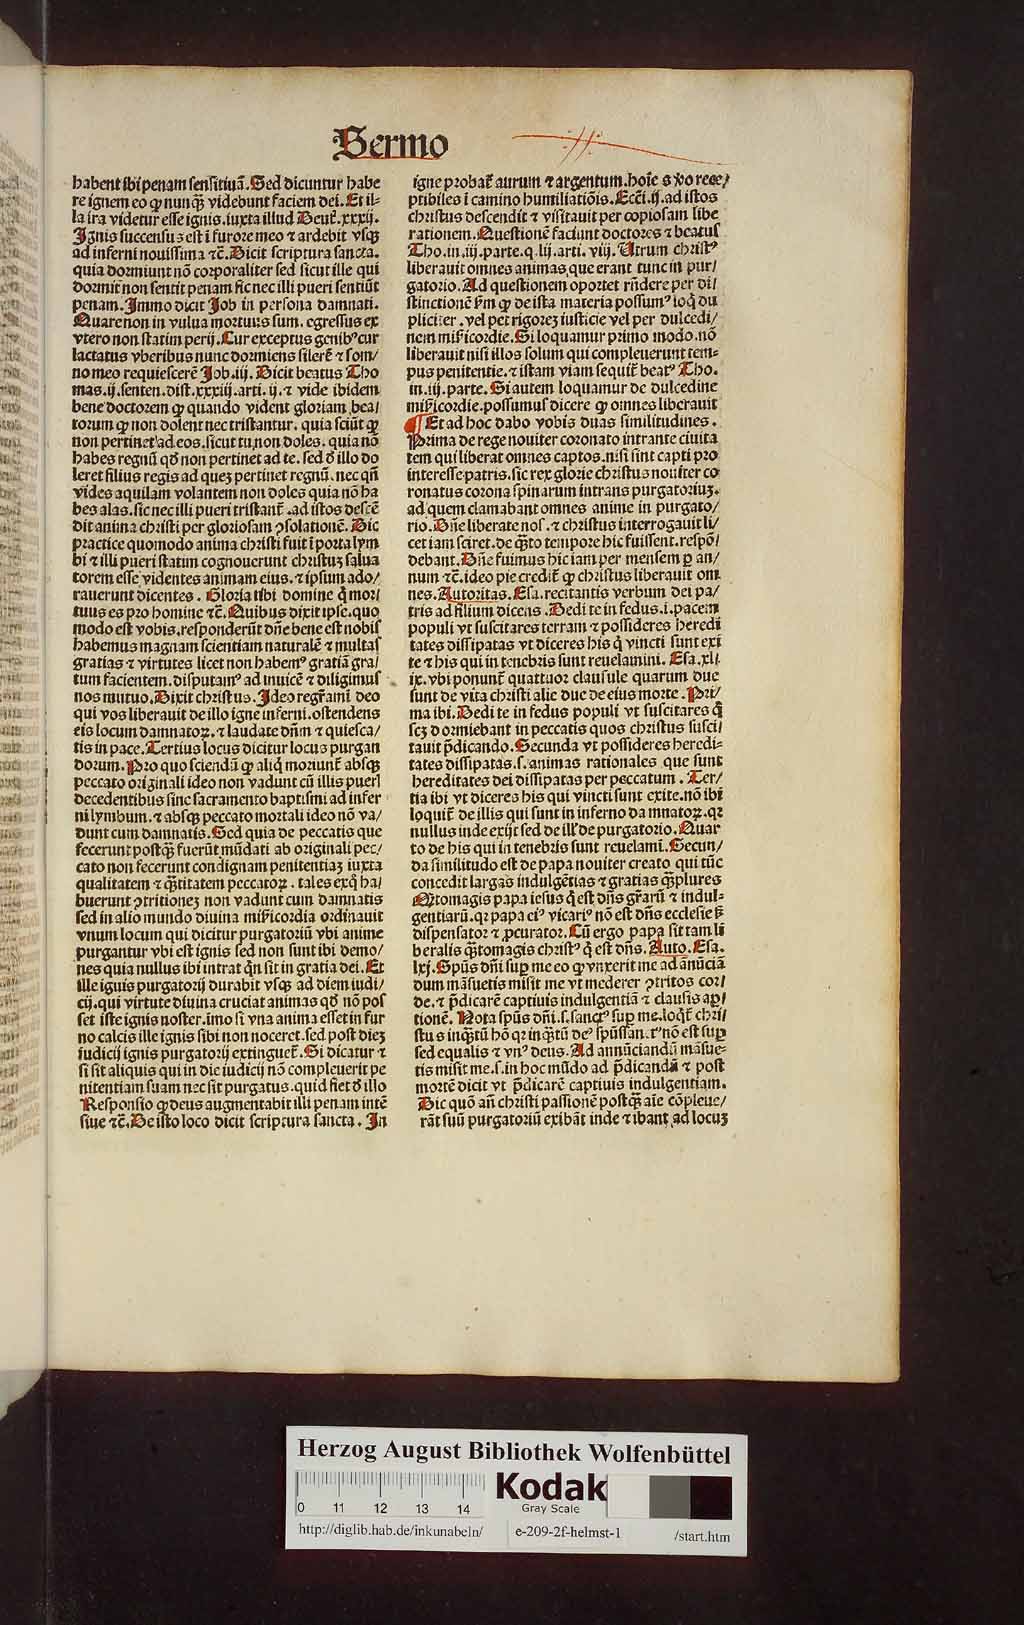 Sermo
habent ibi penam sensitiuã. Sed dicuntur habe
re ignem eo ꝙ nunqᷓ videbunt faciem dei. Et il⸗
la ira videtur esse ignis. iuxta illud Deut̃. xxxij.
Ignis succensus est ĩ furore meo ⁊ ardebit vsqꝫ
ad inferni nouissima ⁊c̃. Dicit scriptura sancta.
quia dormiunt nõ corporaliter sed sicut ille qui
dormit non sentit penam sic nec illi pueri sentiũt
penam. Immo dicit Job in persona damnati.
Quare non in vulua mortuus sum. egressus ex
vtero non statim perij. Cur exceptus genibꝰ cur
lactatus vberibus nunc dormiens silerẽ ⁊ som/
no meo requiescerẽ Job. iij. Dicit beatus Tho
mas. ij. senten. dist. xxxiij. arti. ij. ⁊ vide ibidem
bene doctorem ꝙ quando vident gloriam bea/
torum ꝙ non dolent nec tristantur. quia sciũt ꝙ
non pertinet ad eos. sicut tu non doles. quia nõ
habes regnũ qd̃ non pertinet ad te. sed d̃ illo do
leret filius regis ad quez pertinet regnũ. nec qñ
vides aquilam volantem non doles quia nõ ha
bes alas. sic nec illi pueri tristant̃. ad istos descẽ
dit anima christi per gloriosam ꝯsolationẽ. Dic
practice quomodo anima christi fuit ĩ porta lym
bi ⁊ illi pueri statim cognouerunt christuz salua
torem esse videntes animam eius. ⁊ ipsum ado/
rauerunt dicentes. Gloria tibi domine q̃ mor/
tuus es pro homine ⁊c̃. Quibus dixit ipse. quo
modo est vobis. responderũt dñe bene est nobis
habemus magnam scientiam naturalẽ ⁊ multas
gratias ⁊ virtutes licet non habemꝰ gratiã gra/
tum facientem. disputamꝰ ad inuicẽ ⁊ diligimus
nos mutuo. Dixit christus. Ideo regr̃amĩ deo
qui vos liberauit de illo igne inferni. ostendens
eis locum damnatoꝝ. ⁊ laudate dñm ⁊ quiesca/
tis in pace. Tertius locus dicitur locus purgan
dorum. Pro quo sciendã ꝙ aliq̃ moriunt̃ absqꝫ
peccato originali ideo non vadunt cũ illis pueri
decedentibus sine sacramento baptismi ad infer
ni lymbum. ⁊ absqꝫ peccato mortali ideo nõ va/
dunt cum damnatis. Sed quia de peccatis que
fecerunt postqᷓ fuerũt mũdati ab originali pec/
cato non fecerunt condignam penitentiaz iuxta
qualitatem ⁊ qᷓtitatem peccatoꝝ. tales exq̃ ha/
buerunt ꝯtritionez non vadunt cum damnatis
sed in alio mundo diuina mĩscordia ordinauit
vnum locum qui dicitur purgatoriũ vbi anime
purgantur vbi est ignis sed non sunt ibi demo/
nes quia nullus ibi intrat q̃n sit in gratia dei. Et
ille iguis purgatorij durabit vsqꝫ ad diem iudi/
cij. qui virtute diuina cruciat animas qd̃ nõ pos
set iste ignis noster. imo si vna anima esset in fur
no calcis ille ignis sibi non noceret. sed post diez
iudicij ignis purgatorij extinguet̃. Si dicatur ⁊
si sit aliquis qui in die iudicij nõ compleuerit pe
nitentiam suam nec sit purgatus. quid fiet d̃ illo
Responsio ꝙ deus augmentabit illi penam intẽ
siue ⁊c̃. De isto loco dicit scriptura sancta. In
igne probat̃ aurum ⁊ argentum. hoĩe s ꝟo rece/
ptibiles ĩ camino humiliatiõis. Ecci. ij. ad istos
christus descendit ⁊ visitauit per copiosam libe
rationem. Questionẽ faciunt doctores ⁊ beatus
Tho. in. iij. parte. q. lij. arti. viij. Utrum christꝰ
liberauit omnes animas que erant tunc in pur/
gatorio. Ad questionem oportet rñdere per di/
stinctionẽ ẜm ꝙ de ista materia possumꝰ loq̃ du
pliciter. vel per rigorez iusticie vel per dulcedi/
nem mĩscordie. Si loquamur primo modo. nõ
liberauit nisi illos solum qui compleuerunt tem⸗
pus penitentie. ⁊ istam viam sequit̃ beatꝰ Tho.
in. iij. parte. Si autem loquamur de dulcedine
mĩscordie. possumus dicere ꝙ omnes liberauit
¶ Et ad hoc dabo vobis duas similitudines.
Prima de rege nouiter coronato intrante ciuita
tem qui liberat omnes captos. nisi sint capti pro
interesse patris. sic rex glorie christus nouiter co
ronatus corona spinarum intrans purgatoriuz.
ad quem clamabant omnes anime in purgato/
rio. Dñe liberate nos. ⁊ christus interrogauit li/
cet iam sciret. de qᷓto tempore hic fuissent. respõ/
debant. Dñe fuimus hic iam per mensem ꝑ an/
num ⁊c̃. ideo pie credit̃ ꝙ christus liberauit om
nes. Autoritas. Esa. recitantis verbum dei pa/
tris ad filium dicens. Dedi te in fedus. i. pacem
populi vt suscitares terram ⁊ possideres heredi
tates dissipatas vt diceres his q̃ vincti sunt exi
te ⁊ his qui in tenebris sunt reuelamini. Esa. xli/
ix. vbi ponunt̃ quattuor clausule quarum due
sunt de vita christi alie due de eius morte. Pri/
ma ibi. Dedi te in fedus populi vt suscitares q̃
scz dormiebant in peccatis quos christus susci/
tauit p̃dicando. Secunda vt possideres heredi⸗
tates dissipatas. s. animas rationales que sunt
hereditates dei dissipatas per peccatum. Ter/
tia ibi vt diceres his qui vincti sunt exite. nõ ibi
loquit̃ de illis qui sunt in inferno damnatoꝝ. qꝛ
nullus inde exijt sed de ill̃ de purgatorio. Quar
to de his qui in tenebris sunt reuelamĩ. Secun/
da similitudo est de papa nouiter creato qui tũc
concedit largas indulgẽtias ⁊ gratias qᷓplures
Qᷓtomagis papa iesus q̃ est dñs gr̃arũ ⁊ indul⸗
gentiarũ. qꝛ papa eiꝰ vicariꝰ nõ est dñs ecclesie ẜ
dispensator ⁊ ꝓcurator. Cũ ergo papa sit tam li
beralis qᷓtomagis christꝰ q̃ est dñs. Auto. Esa.
lxj. Spũs dñi suꝑ me eo ꝙ vnxerit me ad anũciã
dum mãsuetis misit me vt mederer ꝯtritos cor/
de. ⁊ p̃dicarẽ captiuis indulgentiã ⁊ clausis aꝑ/
tionẽ. Nota spũs dñi. s. sanctꝰ suꝑ me. loqt̃ chri/
stus inqᷓtũ hõ qꝛ inqᷓtũ deꝰ spũssan. tꝰ nõ est suꝑ
sed equalis ⁊ vnꝰ deus. Ad annũciandũ mãsue⸗
tis misit me. s. in hoc mũdo ad p̃dicandũ ⁊ post
mortẽ dicit vt p̃dicarẽ captiuis indulgentiam.
Dic quõ añ christi passionẽ postqᷓ aĩe cõpleue/
rãt suũ purgatoriũ exibãt inde ⁊ ibant ad locuz
Herzog August Bibliothek Wolfenbüttel
Kodak
Gray Scale
0 11 12 13 14
http://diglib.hab.de/inkunabeln/ e-209-2f-helmst-1 /start.htm